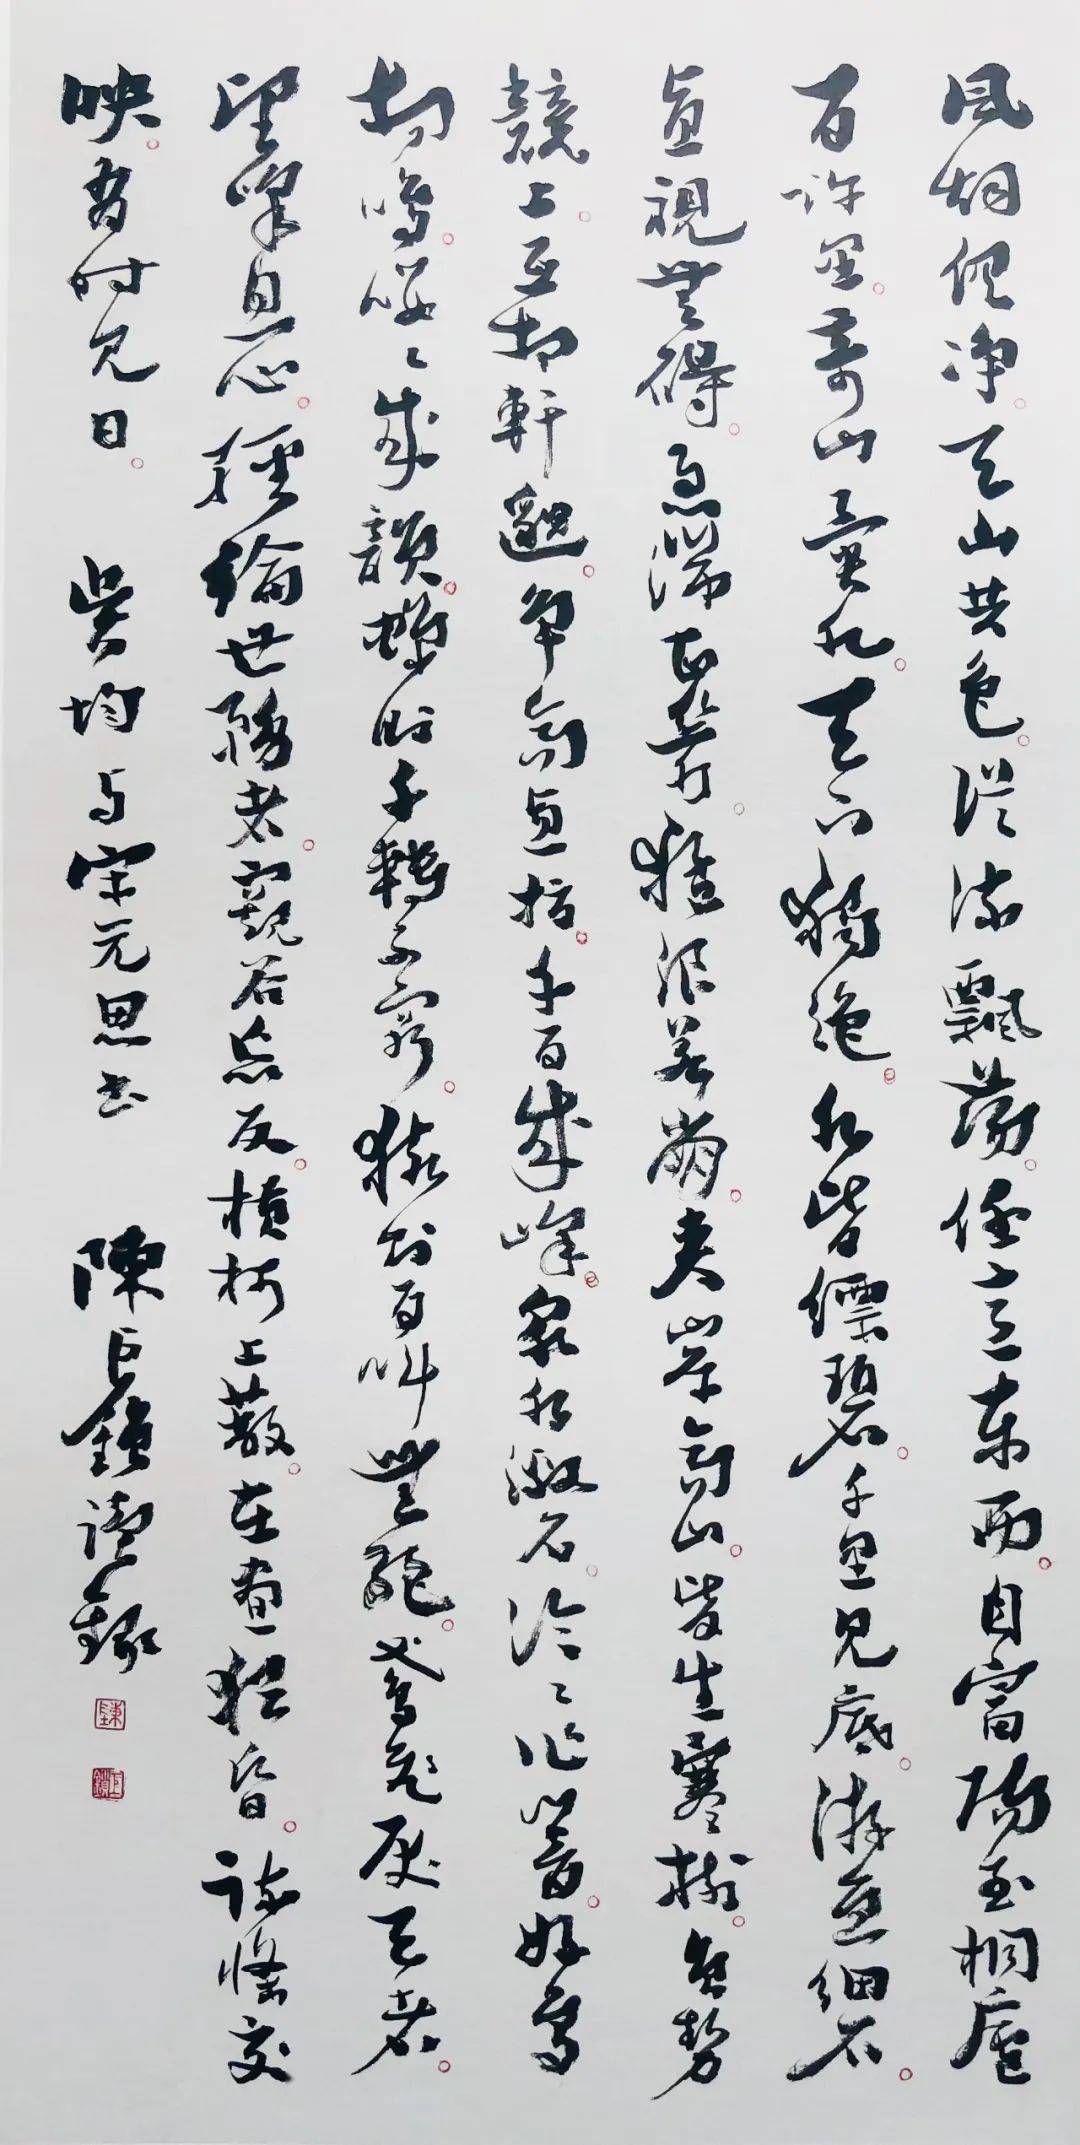 風烟俱净。天山共色。從流飄蕩。任意東西。自富陽至桐廬
百許里。奇山異水。天下獨絕。水皆縹碧。千里見底。游魚細石。
直視無礙。急湍甚箭。猛浪若奔。夾岸高山。皆生寒樹。負勢
競上。互相軒邈。爭高直指。千百成峰。泉水激石。泠〻作響。好鳥
相鳴。嚶〻成韻。蟬則千轉不窮。猿則百叫無絕。鳶飛戾天者。
望峰息心。經綸世務者。窺谷忘反。橫柯上蔽。在晝猶昏。疏條交
映。有時見日。 吳均与宋元思書 陳巨鎖謹錄
巨鎖